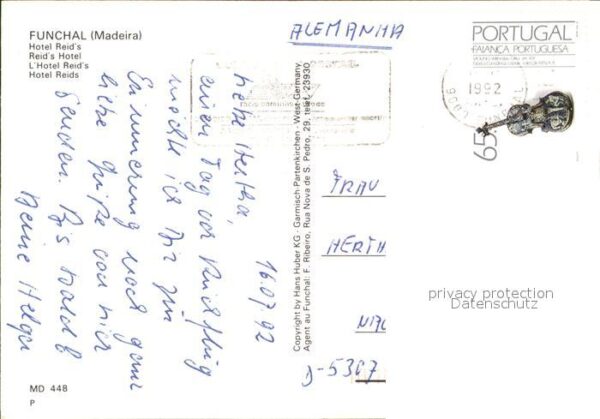 FUNCHAL (Madeira)
Hotel Reid's
Reid's Hotel
L'Hotel Reid's
Hotel Reids
ALEMANHA
PORTUGAL
FAIANÇA PORTUGUESA
1992
65
16.07.92
Liebe Hertha,
einen Tag vor Rückflug
möchte ich Dir zur
Erinnerung noch ganz
liebe Grüße von hier
senden. Bis bald
Deine Helga
Copyright by Hans Huber KG · Garmisch-Partenkirchen · West-Germany
Agent au Funchal: F. Ribeiro, Rua Nova de S. Pedro, 29, telef. 23930
FRAU
HERTH
D-5307
privacy protection
Datenschutz
MD 448
P